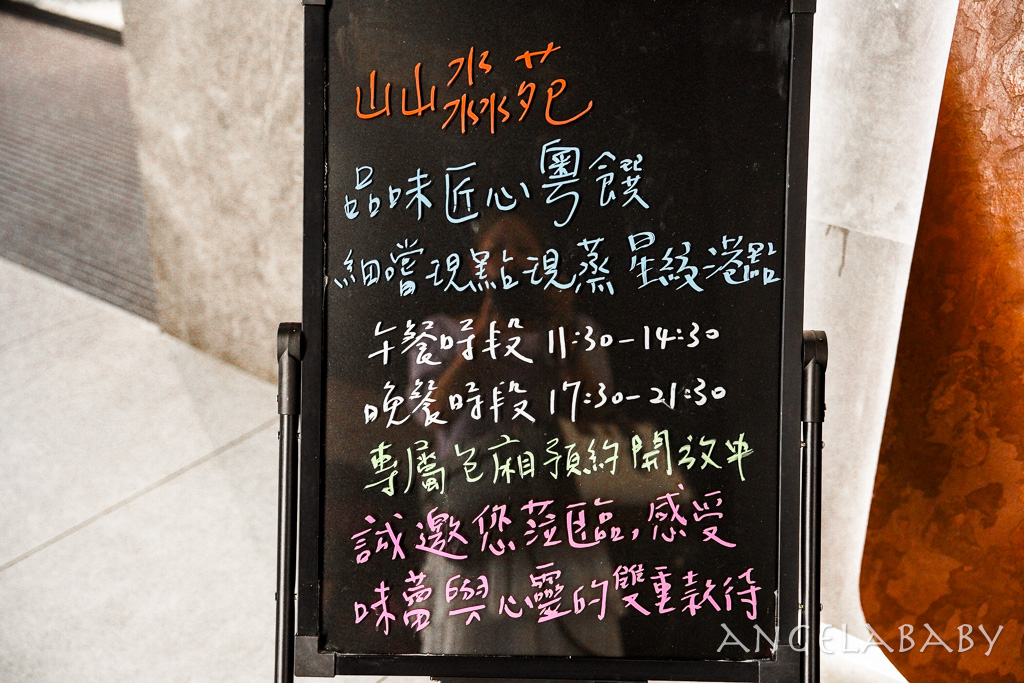 山山淼苑
品味匠心粵饌
細嚐現點現蒸星級港點
午餐時段 11:30-14:30
晚餐時段 17:30-21:30
專屬包廂預約開放中
誠邀您蒞臨,感受
味蕾與心靈的雙重款待
ANGELABABY